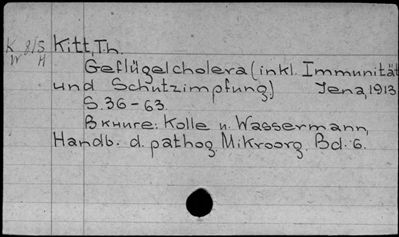 K 8/5 Kitt, Th.
W H
Geflügelcholera (inkl. Immunität
und Schutzimpfung) Jena, 1913
S. 36-63.
Вкниге: Kolle u. Wassermann,
Handb. d. pathog. Mikroorg. Bd. 6.